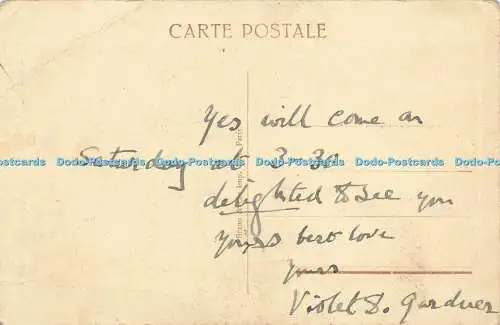 CARTE POSTALE
Yes will come on
Saturday at 3.30
Dodo-Postcards Dodo-Postcards Dodo-Postcards Dodo-Postcards Dodo-Postcards Dodo-Postcards
delighted to see you
yours best love
yours
Violet D. Gardner
Imp. Paris